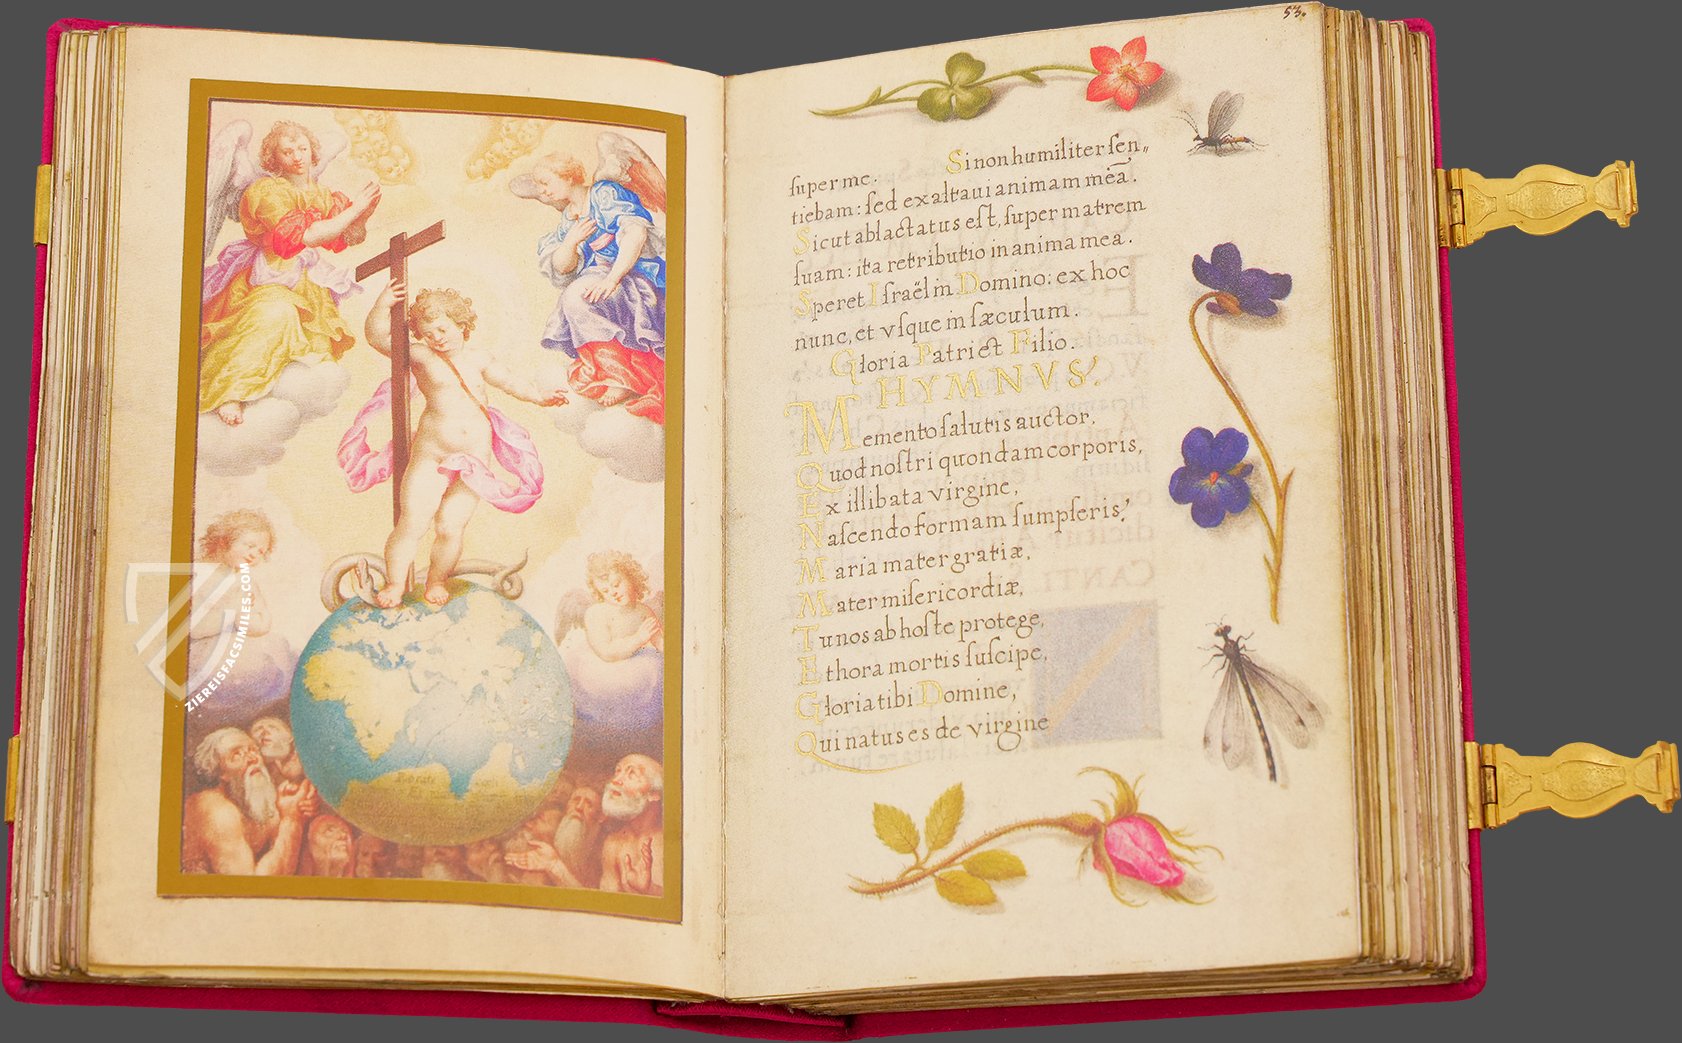 ZIEREISFACSIMILES.COM
53.
Si non humiliter ſen„
ſuper me.
tiebam: ſed exaltaui animam meā.
Sicut ablactatus eſt, ſuper matrem
ſuam: ita retributio in anima mea.
Speret Iſraël in Domino: ex hoc
nunc, et vſque in ſæculum.
Gloria Patri et Filio.
HYMNVS.
Memento ſalutis auctor,
Quod noſtri quondam corporis,
Ex illibata virgine,
Naſcendo formam ſumpſeris.
Maria mater gratiæ,
Mater miſericordiæ,
Tu nos ab hoſte protege,
Et hora mortis ſuſcipe,
Gloria tibi Domine,
Qui natus es de virgine